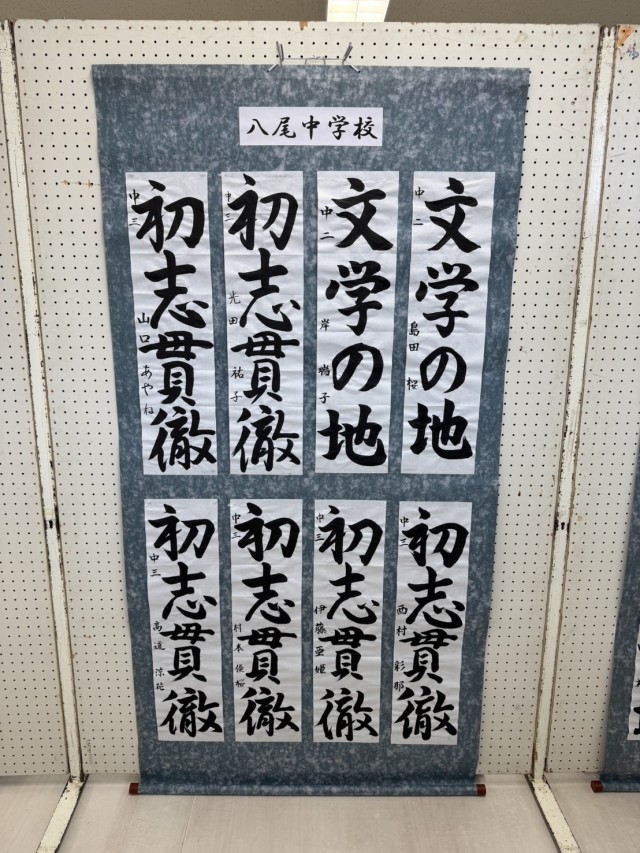 八尾中学校
文学の地
中二 島田 桜
文学の地
中二 岸 鳴子
初志貫徹
中三 光田 祐子
初志貫徹
中三 山口あやね
初志貫徹
中三 西村 彩那
初志貫徹
中三 伊藤亜姫
初志貫徹
中三 村本
初志貫徹
中三 高道